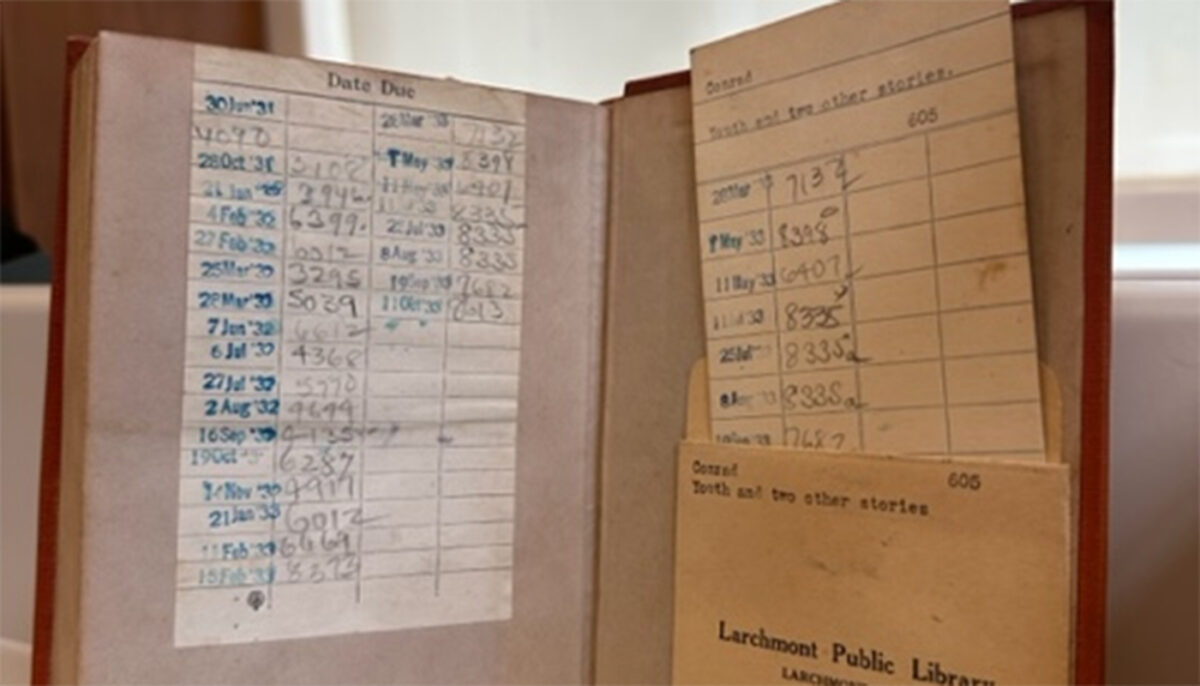 Date Due
30 Jun '31
4090
28 Oct '31 3102
'32 3946
4 Feb '32 6399
27 Feb '32 6312
25 Mar '32 3295
28 Mar '32 5039
7 Jun '32 6612
6 Jul '32 4368
27 Jul '32 5770
2 Aug '32 4644
16 Sep 4135
19 Oct 6287
Nov 4914
21 Jan '33 6012
11 Feb '33 6469
15 Feb '33 8373
Mar 7132
May '33 8398
11 May '33 6407
8335
25 Jul '33 8335
8 Aug '33 8335
19 Sep '33 7682
11 Oct '33
Conrad
Youth and two other stories.
605
Mar 7132
May '33 8398
11 May '33 6407
8335
25 Jul 8335a
8 Aug '33 8335a
'33 7682
Conrad 605
Youth and two other stories
Larchmont Public Library